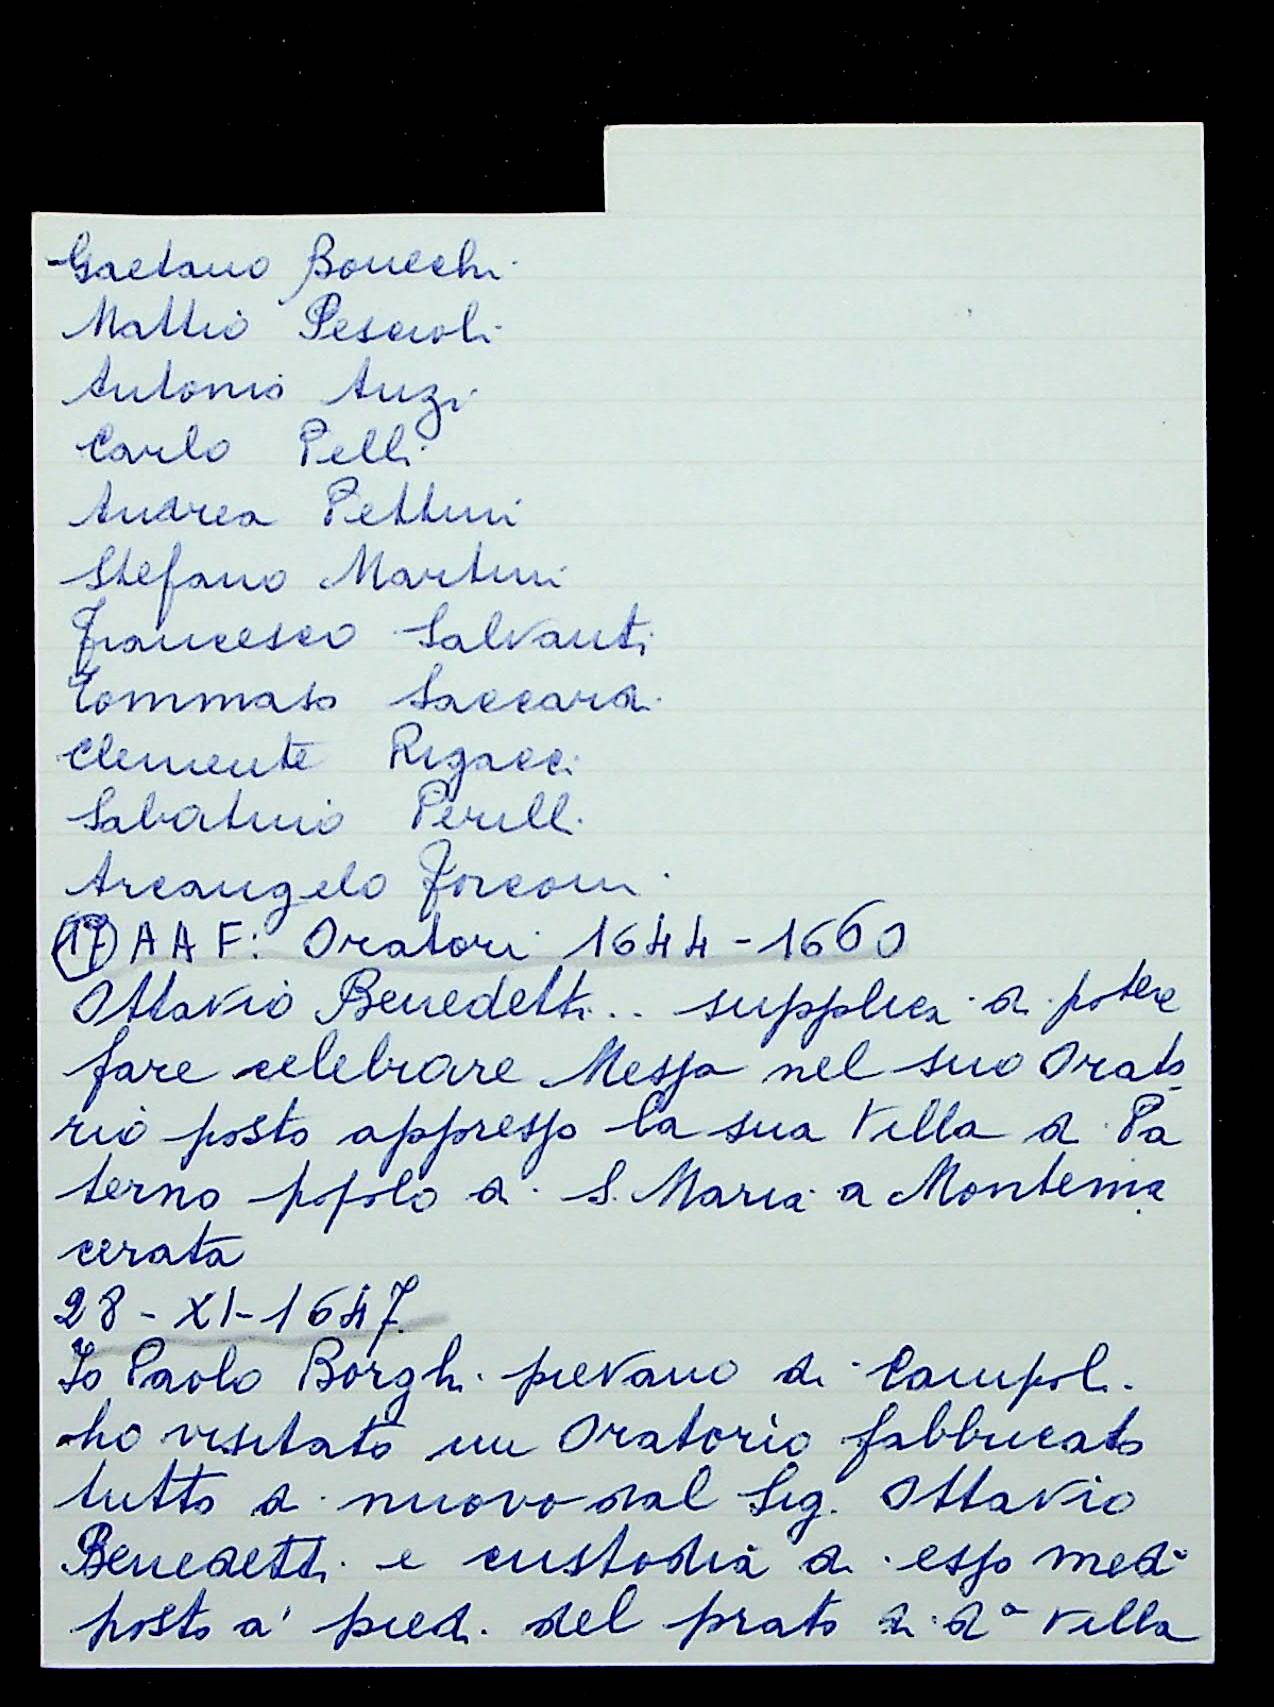 Gaetano Bonechi
Mattio Pescioli
Antonio Anzi
Carlo Pelli
Andrea Pettini
Stefano Martini
Francesco Salvanti
Tommaso Saccardi
Clemente Rigacci
Sabatino Perulli
Arcangelo Forconi
17 A A F: Oratori 1644-1660
Ottavio Benedetti.. supplica di potere
fare celebrare Messa nel suo Orato
rio posto appresso la sua Villa di Pa
terno popolo di S. Maria a Montema
cerata
28-XI-1647.
Io Paolo Borghi pievano di Campoli
ho visitato un Oratorio fabbricato
tutto di nuovo dal Sig. Ottavio
Benedetti e custodia di esso medo
posto a' piedi del prato di da Villa